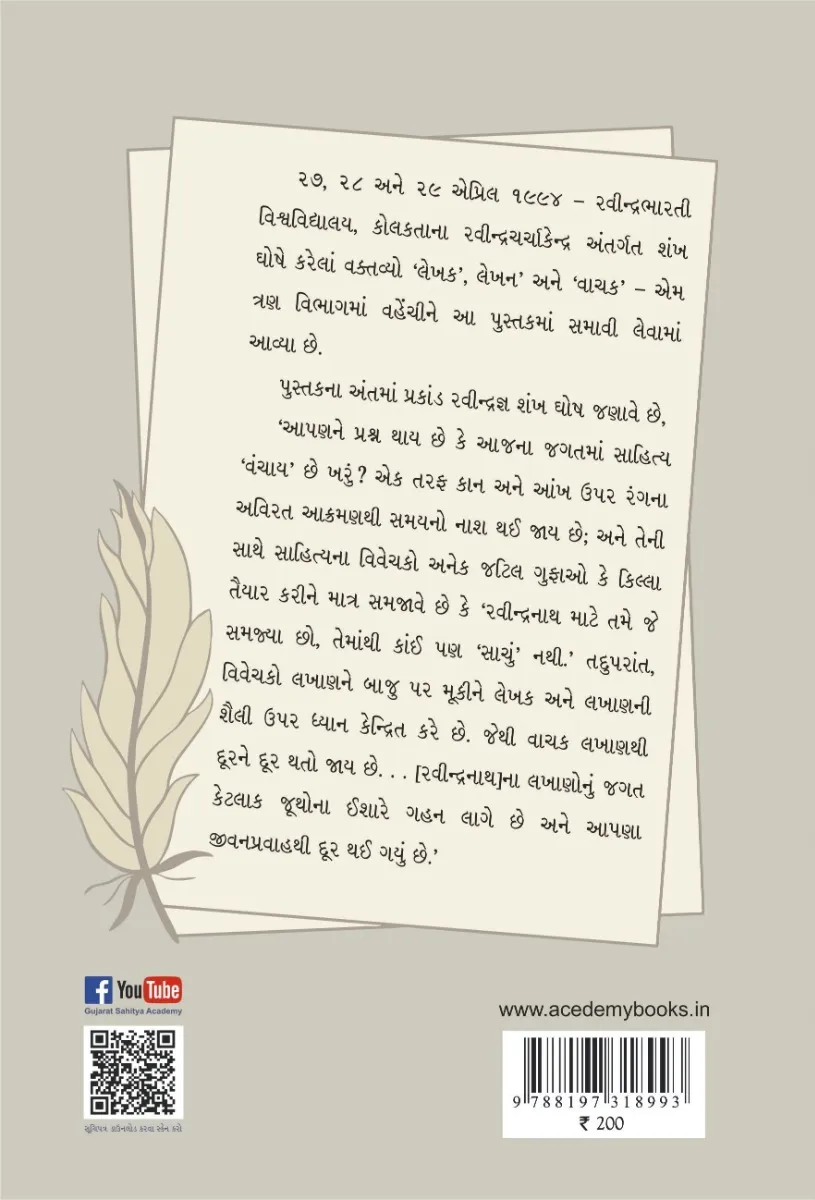 ૨૭, ૨૮ અને ૨૯ એપ્રિલ ૧૯૯૪ – રવીન્દ્રભારતી
વિશ્વવિદ્યાલય, કોલકતાના રવીન્દ્રચર્ચાકેન્દ્ર અંતર્ગત શંખ
ઘોષે કરેલાં વક્તવ્યો ‘લેખક’, લેખન’ અને ‘વાચક’ – એમ
ત્રણ વિભાગમાં વહેંચીને આ પુસ્તકમાં સમાવી લેવામાં
આવ્યા છે.
પુસ્તકના અંતમાં પ્રકાંડ રવીન્દ્રજ્ઞ શંખ ઘોષ જણાવે છે,
‘આપણને પ્રશ્ન થાય છે કે આજના જગતમાં સાહિત્ય
‘વંચાય’ છે ખરું? એક તરફ કાન અને આંખ ઉપર રંગના
અવિરત આક્રમણથી સમયનો નાશ થઈ જાય છે; અને તેની
સાથે સાહિત્યના વિવેચકો અનેક જટિલ ગુફાઓ કે કિલ્લા
તૈયાર કરીને માત્ર સમજાવે છે કે ‘રવીન્દ્રનાથ માટે તમે જે
સમજ્યા છો, તેમાંથી કાંઈ પણ ‘સાચું’ નથી.’ તદુપરાંત,
વિવેચકો લખાણને બાજુ પર મૂકીને લેખક અને લખાણની
શૈલી ઉપર ધ્યાન કેન્દ્રિત કરે છે. જેથી વાચક લખાણથી
દૂરને દૂર થતો જાય છે. . . [રવીન્દ્રનાથ]ના લખાણોનું જગત
કેટલાક જૂથોના ઈશારે ગહન લાગે છે અને આપણા
જીવનપ્રવાહથી દૂર થઈ ગયું છે.’
f YouTube
Gujarat Sahitya Academy
સૂચિપત્ર ડાઉનલોડ કરવા સ્કેન કરો
www.acedemybooks.in
9 788197 318993
₹ 200